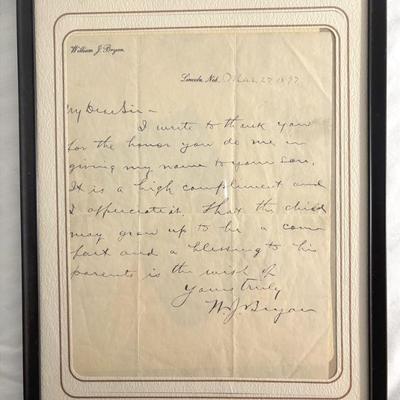 William J. Bryan.
Lincoln, Neb. Mar 27 1897
My Dear Sir -
I write to thank you
for the honor you do me in
giving my name to your son.
It is a high compliment and
I appreciate it. That the child
may grow up to be a com
fort and a blessing to his
parents is the wish of
Yours truly
W. J. Bryan